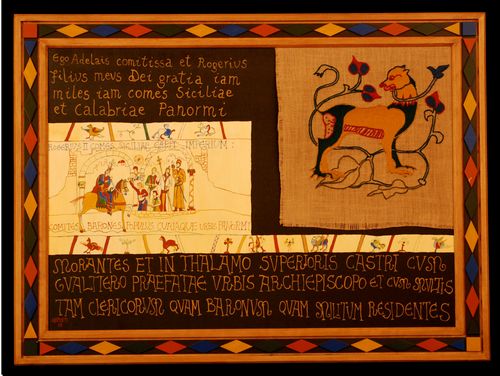 Ego Adelais comitissa et Rogerius
filius meus Dei gratia iam
miles iam comes Siciliae
et Calabriae Panormi
ROGERIUS II COMES SICILIAE CAPIT IMPERIUM:
COMITES BARONES POPULUS CURIAQUE URBIS PANORMI
MORANTES ET IN THALAMO SUPERIORIS CASTRI CUM
GUALTIERO PRAEFATAE URBIS ARCHIEPISCOPO ET CUM MULTIS
TAM CLERICORUM QUAM BARONUM QUAM MILITUM RESIDENTES